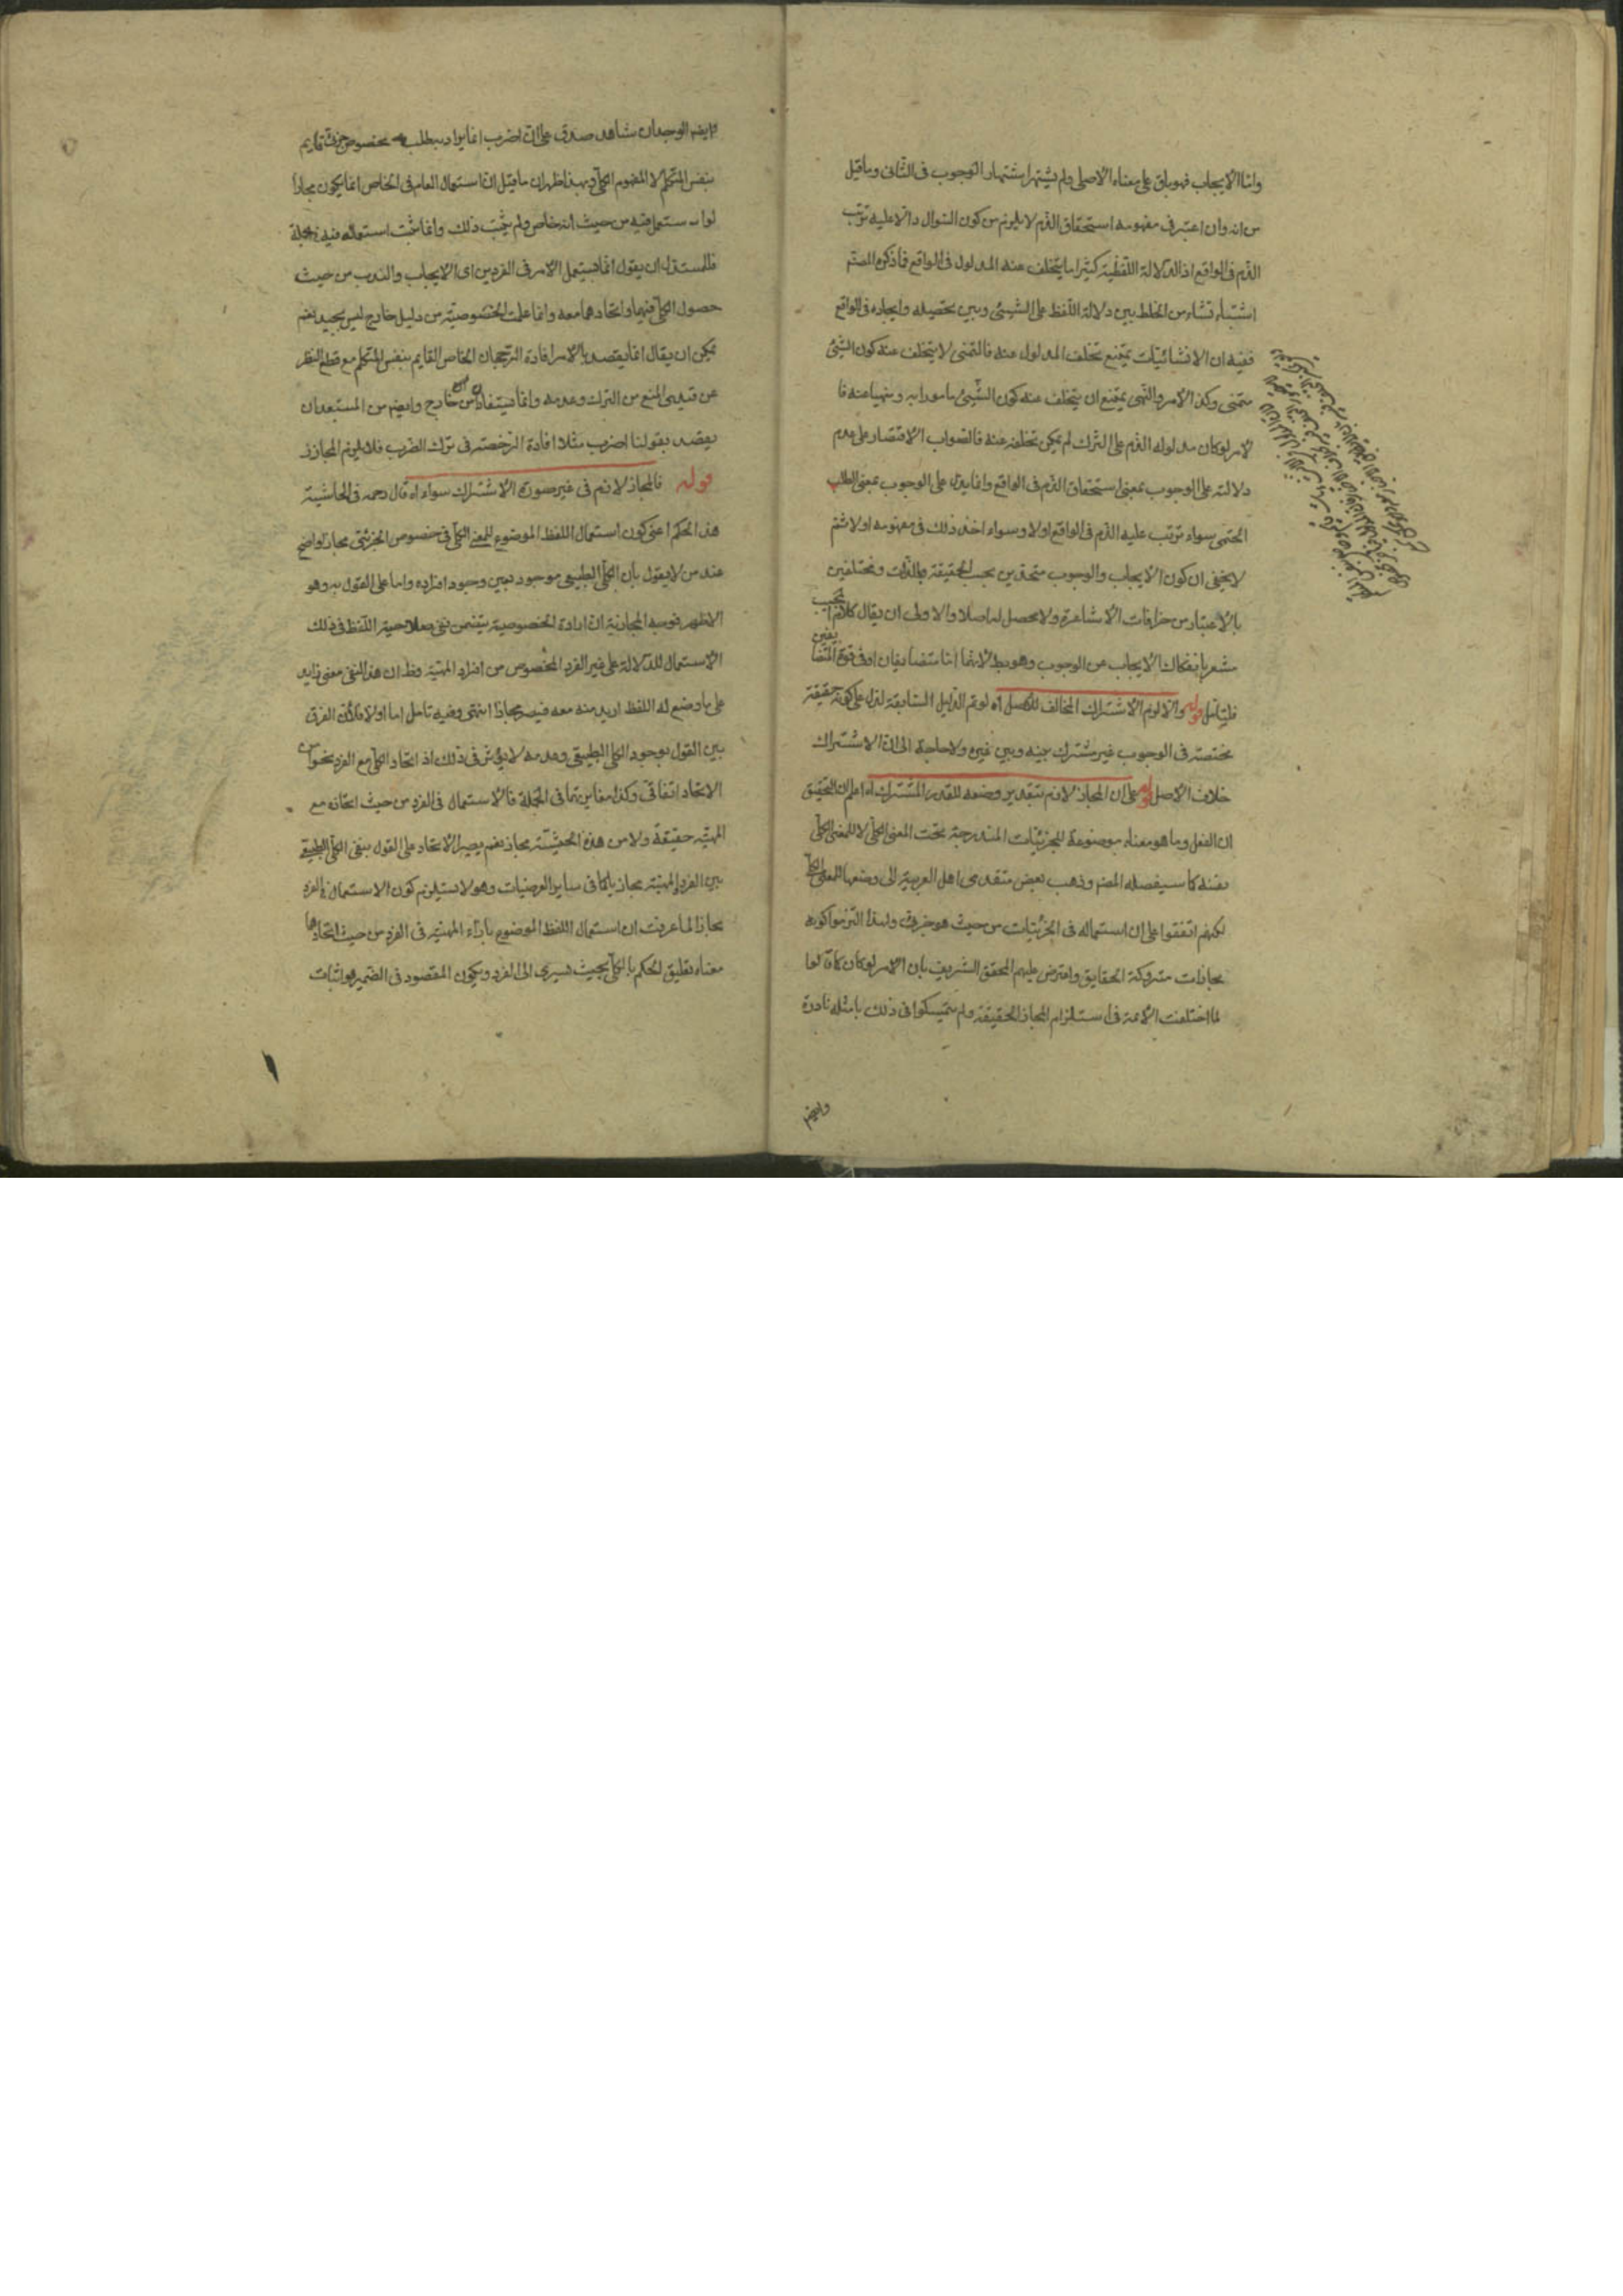 واما الايجاب فهو باق على معناه الاصلى ولم يشتهر اشتهار الوجوب فى الثانى وما قيل
من انه وان اعتبر فى مفهومه استحقاق الذم لا يلزم من كون السوال دالا عليه ترتب
الذم فى الواقع اذ الدلالة اللفظية كثيرا ما يتخلف عنه المدلول فى الواقع فما ذكره المصنم
اشتباه نشاء من الخلط بين دلالة اللفظ على الشيئ وبين تحصيله وايجاده فى الواقع
ففيه ان الانشائيات يمتنع تخلف المدلول عنه فالتمنى لا يتخلف عنه كون الشئ
متمنى وكذا الامر والنهى يمتنع ان يتخلف عنه كون الشيئ مامورا به ومنهيا عنه فا
لامر لو كان مدلوله الذم على الترك لم يمكن تخلفه عنه فالصواب الاقتصار على عدم
دلالته على الوجوب بمعنى استحقاق الذم فى الواقع وانما يدل على الوجوب بمعنى الطلب
الحتمى سواء ترتب عليه الذم فى الواقع اولا وسواء اخذ ذلك فى مفهومه اولا ثم
لا يخفى ان كون الايجاب والوجوب متحدين بحسب الحقيقة والذات ومختلفين
بالاعتبار من خرافات الاشاعرة ولا محصل له اصلا والاولى ان يقال كلام المجيب
مشعر بانفكاك الايجاب عن الوجوب وهو بط لانهما اما متضايفان او فى قوة المتضايفين
فليتامل قوله والا لزم الاشتراك المخالف للاصل اه لو تم الدليل السابقة لدل على كونه حقيقة
مختصة فى الوجوب غير مشترك بينه وبين غيره ولا حاجة الى ان الاشتراك
خلاف الاصل قوله على ان المجاز لازم بتقدير وضعه للقدر المشترك اه اعلم ان التحقيق
ان الفعل وما هو معناه موضوعة للجزئيات المندرجة تحت المعنى الكلى لا للمعنى الكلى
نفسه كما سيفصله المصنم وذهب بعض متقدمى اهل العربية الى وضعها للمعنى الكلى
لكنهم اتفقوا على ان استعماله فى الجزئيات من حيث هو جزئى ولهذا التزموا كونه
مجازات متروكة الحقايق واعترض عليهم المحقق الشريف بان الامر لو كان كما قالوا
لما اختلفت الائمة فى استلزام المجاز الحقيقة ولم يتمسكوا فى ذلك بامثله نادرة
وايضم
وايضم الوجدان شاهد صدق على ان اضرب انما يراد به طلب مخصوص جزئى قايم
بنفس المتكلم لا المفهوم الكلى وبهذا ظهر ان ما قيل ان استعمال العام فى الخاص انما يكون مجازا
لو استعمل فيه من حيث انه خاص ولم يثبت ذلك وانما ثبت استعماله فيه فى الجملة
فللمستدل ان يقول انما يستعمل الامر فى الفردين اى الايجاب والندب من حيث
حصول الكلى فيهما واتحادهما معه وانما علمت الخصوصية من دليل خارج ليس بجيد نعم
يمكن ان يقال انما يقصد بالامر افادة الرجحان الخاص القايم بنفس المتكلم مع قطع النظر
عن قيدى المنع من الترك وعدمه وانما يستفاد ان من خارج وايضم من المستبعد ان
يقصد بقولنا اضرب مثلا افادة الرخصة فى ترك الضرب فلا يلزم المجاز
قوله فالمجاز لازم فى غير صورة الاشتراك سواء اه قال رحمه فى الحاشية
هذا الحكم اعنى كون استعمال اللفظ الموضوع للمعنى الكلى فى خصوص الجزئى مجازا واضح
عند من لا يقول بان الكلى الطبيعى موجود بعين وجود افراده واما على القول به وهو
الاظهر فوجه المجازية ان ارادة الخصوصية يتضمن نفى صلاحية اللفظ فى ذلك
الاستعمال للدلالة على غير الفرد المخصوص من افراد المهية وظ ان هذا النفى معنى زايد
على ما وضع له اللفظ اريد منه معه فيصير مجازا انتهى وفيه تامل اما اولا فلان الفرق
بين القول بوجود الكلى الطبيعى وعدمه لا يؤثر فى ذلك اذ اتحاد الكلى مع الفرد بنحو من
الاتحاد اتفاقى وكذا مغايرتهما فى الجملة فالاستعمال فى الفرد من حيث اتحاده مع
المهية حقيقة ولا من هذه الحيثية مجاز نعم يصير الاتحاد على القول بنفى الكلى الطبيعى
بين الفرد والمهية مجازيا كما فى ساير العرضيات وهو لا يستلزم كون الاستعمال فى الفرد
مجازا لما عرفت ان استعمال اللفظ الموضوع بازاء المهية فى الفرد من حيث اتحادهما
معناه تعليق الحكم بالكلى بحيث يسرى الى الفرد ويكون المقصود فى الضمير هو اثبات